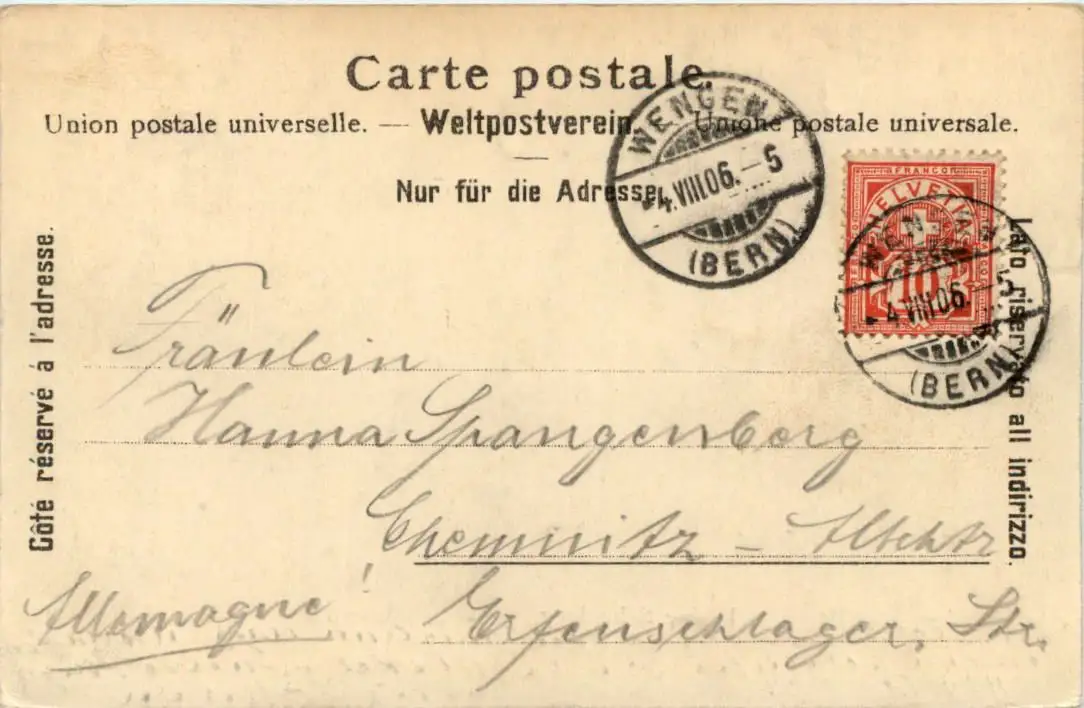 Carte postale.
Union postale universelle. — Weltpostverein. — Unione postale universale.
Nur für die Adresse.
WENGEN
4.VIII.06.–5
(BERN)
FRANCO
HELVETIA
10
WENGEN
4.VIII.06.–5
(BERN)
Côté réservé à l'adresse.
Lato riservato all indirizzo.
Fräulein
Hanna Spangenberg
Chemnitz – Altchtz
Allemagne!
Erfenschlager, Str.